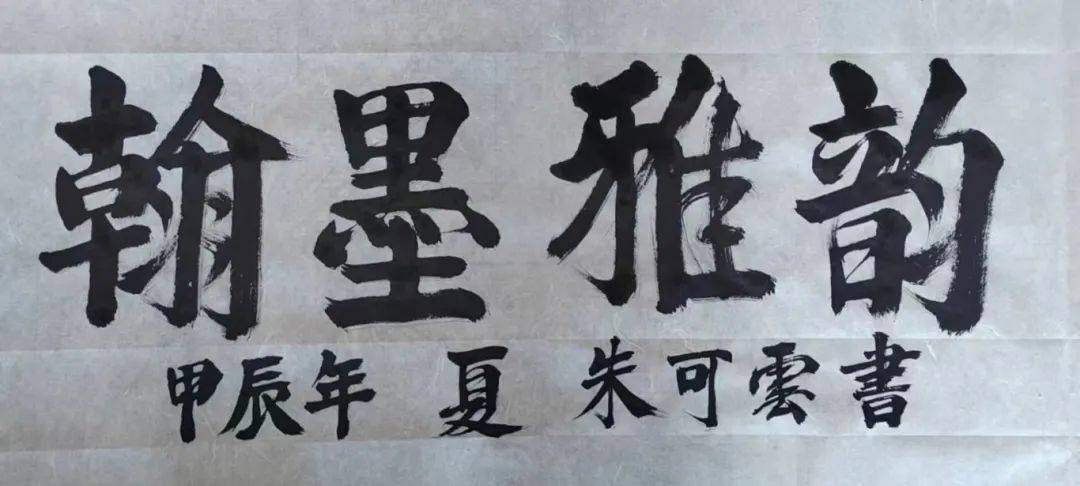 翰墨雅韵
甲辰年 夏 朱可雲書